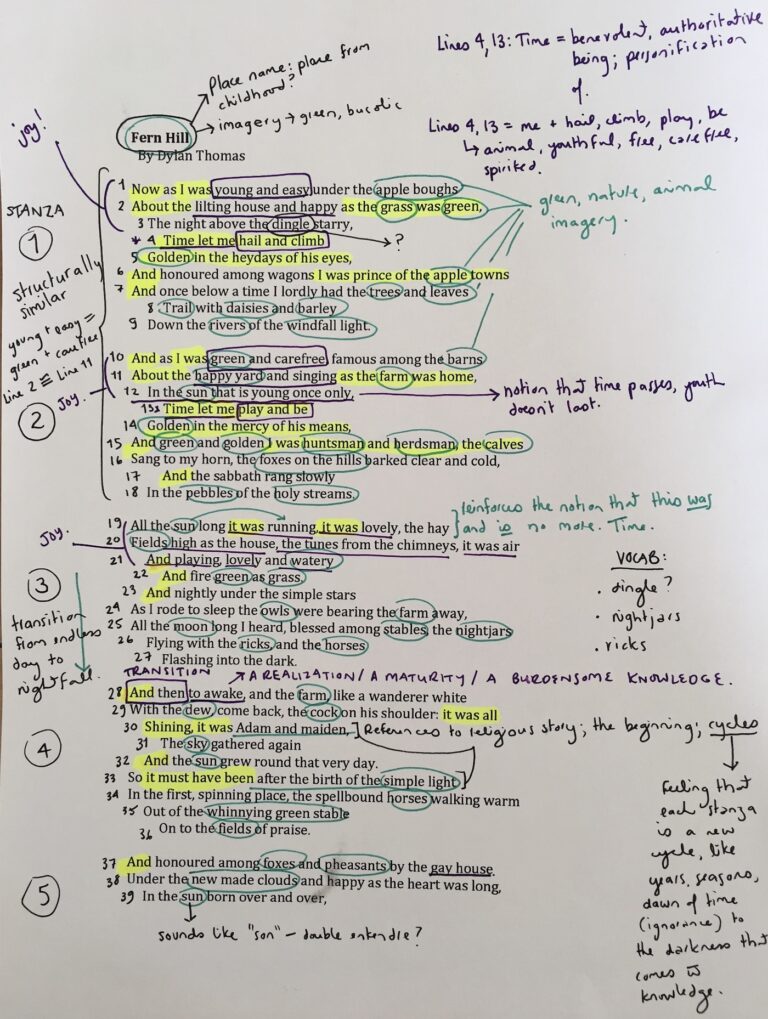 Lines 4, 13: Time = benevolent, authoritative
being; personification
of.
Place name: place from
childhood?
→ imagery → green, bucolic
Lines 4, 13 = me + hail, climb, play, be
↳ animal, youthful, free, carefree,
spirited.
joy!
Fern Hill
By Dylan Thomas
green, nature, animal
imagery.
STANZA
1
structurally
similar
young + easy =
green + carefree
Line 2 ≡ Line 11
1 Now as I was young and easy under the apple boughs
2 About the lilting house and happy as the grass was green,
3 The night above the dingle starry,
* 4 Time let me hail and climb → ?
5 Golden in the heydays of his eyes,
6 And honoured among wagons I was prince of the apple towns
7 And once below a time I lordly had the trees and leaves
8 Trail with daisies and barley
9 Down the rivers of the windfall light.
2
Joy.
10 And as I was green and carefree, famous among the barns
11 About the happy yard and singing as the farm was home,
12 In the sun that is young once only, → notion that time passes, youth
doesn't last.
13 Time let me play and be
14 Golden in the mercy of his means,
15 And green and golden I was huntsman and herdsman, the calves
16 Sang to my horn, the foxes on the hills barked clear and cold,
17 And the sabbath rang slowly
18 In the pebbles of the holy streams.
Joy.
3
transition
from endless
day to
nightfall.
19 All the sun long it was running, it was lovely, the hay
20 Fields high as the house, the tunes from the chimneys, it was air
21 And playing, lovely and watery
reinforces the notion that this was
and is no more. Time.
22 And fire green as grass.
23 And nightly under the simple stars
24 As I rode to sleep the owls were bearing the farm away,
25 All the moon long I heard, blessed among stables, the nightjars
26 Flying with the ricks, and the horses
27 Flashing into the dark.
VOCAB:
• dingle?
• nightjars
• ricks
TRANSITION ↗ A REALIZATION / A MATURITY / A BURDENSOME KNOWLEDGE.
4
28 And then to awake, and the farm, like a wanderer white
29 With the dew, come back, the cock on his shoulder: it was all
30 Shining, it was Adam and maiden, ] References to religious story; the beginning; cycles
31 The sky gathered again
32 And the sun grew round that very day.
33 So it must have been after the birth of the simple light
34 In the first, spinning place, the spellbound horses walking warm
35 Out of the whinnying green stable
36 On to the fields of praise.
Feeling that
each stanza
is a new
cycle, like
years, seasons,
dawn of time
(ignorance) to
the darkness that
comes w
knowledge.
5
37 And honoured among foxes and pheasants by the gay house
38 Under the new made clouds and happy as the heart was long,
39 In the sun born over and over,
sounds like "son" – double entendre?